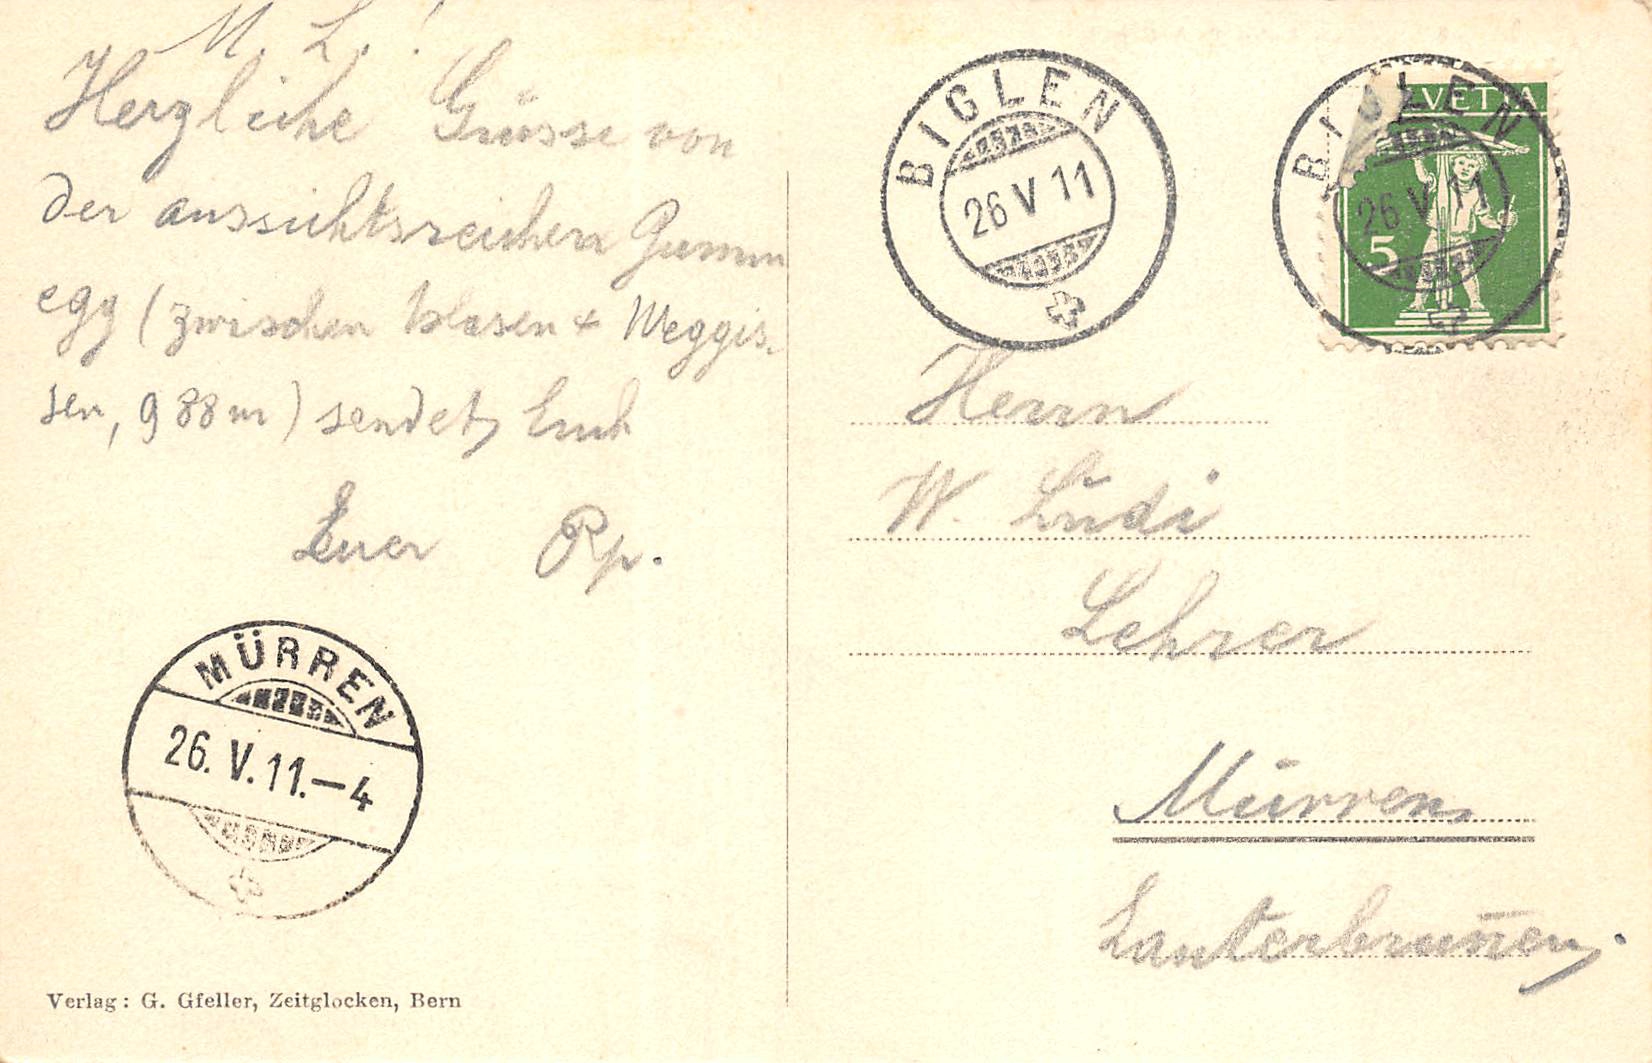 M. L. !
Herzliche Grüsse von
der aussichtsreichen Gumm
egg (zwischen Blasen + Weggis-
sen, 988 m) sendet Euch
Euer Rp.
MÜRREN
26. V. 11.–4
Verlag: G. Gfeller, Zeitglocken, Bern
BIGLEN
26 V 11
BIGLEN
26 V 11
HELVETIA
5
Herrn
W. Lüdi
Lehrer
Mürren
Lauterbrun̄en.